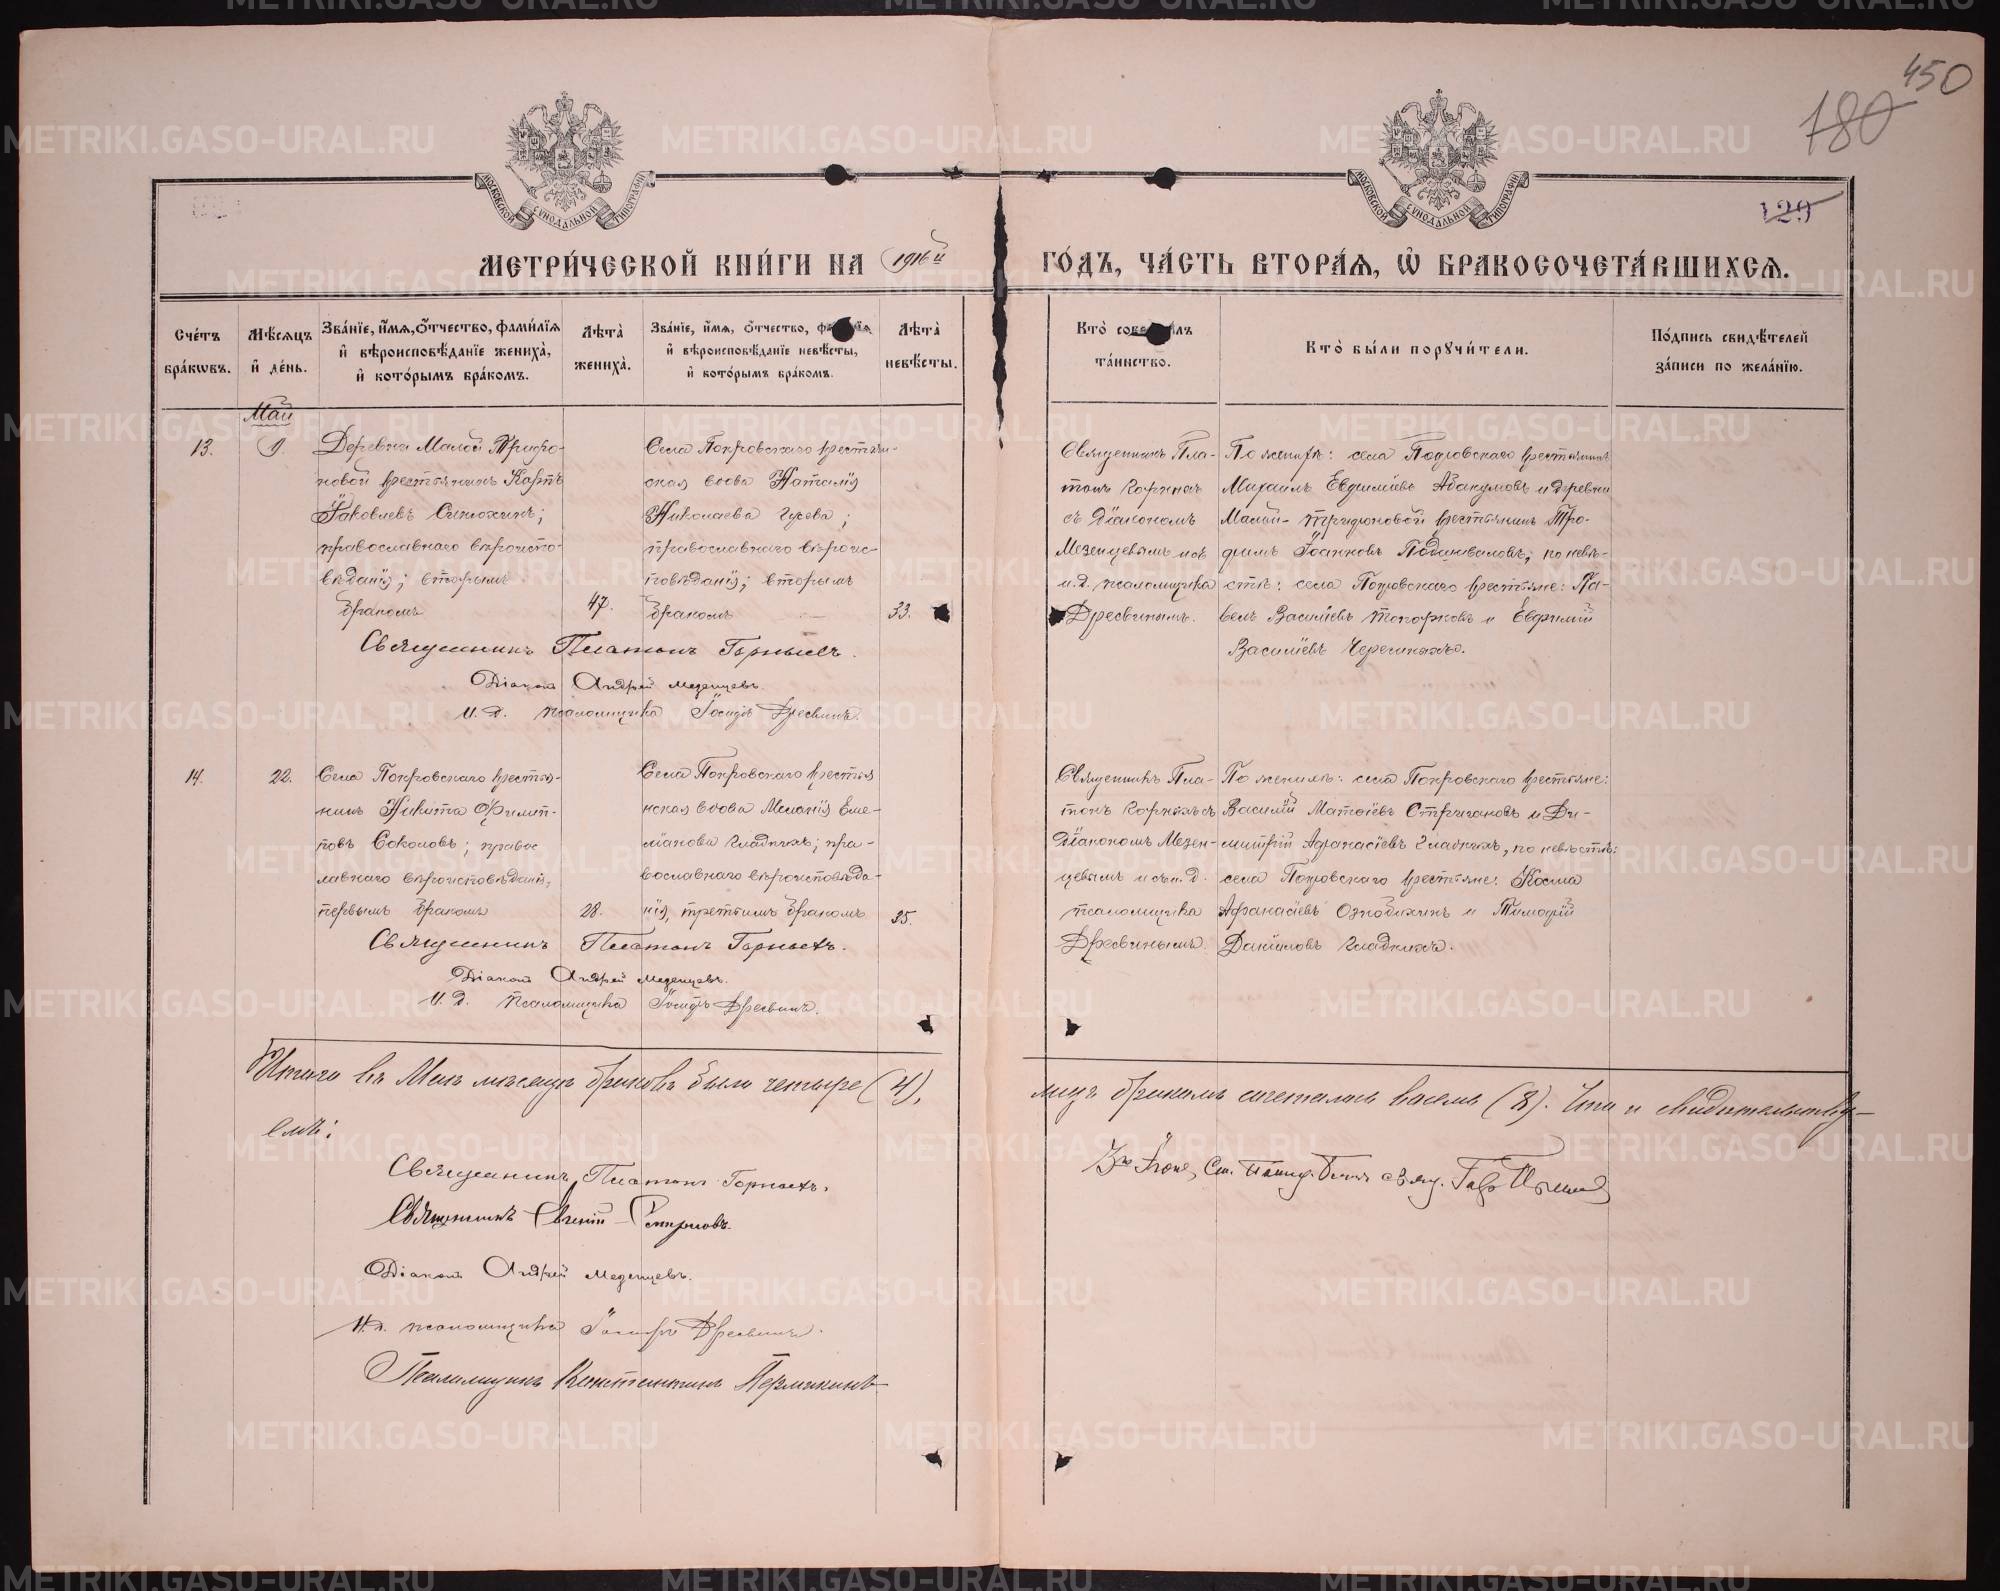 450
180
129
МОСКОВСКОЙ СѴНОДАЛЬНОЙ ТИПОГРАФІИ
МОСКОВСКОЙ СѴНОДАЛЬНОЙ ТИПОГРАФІИ
МЕТРИ́ЧЕСКОЙ КНИ́ГИ НА 1916й ГО́ДЪ, ЧА́СТЬ ВТОРА́Я, Ѡ БРАКОСОЧЕТА́ВШИХСЯ.
Сче́тъ бра́кѡвъ.
Мѣ́сяцъ и҆ де́нь.
Зва́нїе, и҆́мя, ѻ҆́тчество, фами́лїя и҆ вѣроисповѣ́данїе жениха̀, и҆ кото́рымъ бра́комъ.
Лѣта̀ жениха̀.
Зва́нїе, и҆́мя, ѻ҆́тчество, фами́лїя и҆ вѣроисповѣ́данїе невѣ́сты, и҆ кото́рымъ бра́комъ.
Лѣта̀ невѣ́сты.
Кто̀ соверши́лъ та́инство.
Кто̀ бы́ли порꙋчи́тели.
По́дпись свидѣ́телей за́писи по жела́нїю.
Май
13.
1.
Деревни Малой Трифо-
новой крестьянинъ
Яковлевъ Синюхинъ;
православнаго вѣроиспо-
вѣданія; вторымъ
бракомъ
47.
Села Покровскаго крестьян-
ская вдова Наталія
Николаева Гусева;
православнаго вѣроис-
повѣданія; вторымъ
бракомъ
33.
Священникъ Пла-
тонъ Горныхъ
съ Діакономъ
Мезенцевымъ и съ
и.д. псаломщика
Дресвинымъ.
По женихѣ: села Покровскаго крестьянинъ
Михаилъ Евфиміевъ Абакумовъ и деревни
Малой-Трифоновой крестьянинъ Тро-
фимъ Іоанновъ Подшиваловъ; по невѣ-
стѣ: села Покровскаго крестьяне: Па-
велъ Василіевъ Топорковъ и Евфимій
Василіевъ Черемныхъ.
Священникъ Платонъ Горныхъ.
Діаконъ Андрей Мезенцевъ.
И.д. псаломщика Іосифъ Дресвинъ.
14.
22.
Села Покровскаго крестья-
нинъ Никита Филип-
повъ Соколовъ; правос
лавнаго вѣроисповѣданія,
первымъ бракомъ
28.
Села Покровскаго крестья
нская вдова Меланія Еме-
ліанова Гладкихъ; пра-
вославнаго вѣроисповѣда-
нія, третьимъ бракомъ
35.
Священникъ Пла-
тонъ Горныхъ съ
Діакономъ Мезен-
цевымъ и съ и.д.
псаломщика
Дресвинымъ.
По женихѣ: села Покровскаго крестьяне:
Василій Матѳіевъ Стригановъ и Ди-
митрій Афанасіевъ Гладкихъ, по невѣстѣ:
села Покровскаго крестьяне: Косма
Афанасіевъ Ознобихинъ и Тимофій
Даніиловъ Гладкихъ.
Священникъ Платонъ Горныхъ.
Діаконъ Андрей Мезенцевъ.
И.д. псаломщика Іосифъ Дресвинъ.
Итого въ Маѣ мѣсяцѣ браковъ было четыре (4), лицъ бракомъ сочеталось восемь (8). Что и свидѣтельству-
емъ:
Священникъ Платонъ Горныхъ.
Священникъ Евгеній
Діаконъ Андрей Мезенцевъ.
И.д. псаломщика Іосифъ Дресвинъ.
Псаломщикъ Константинъ Пермякинъ
METRIKI.GASO-URAL.RU